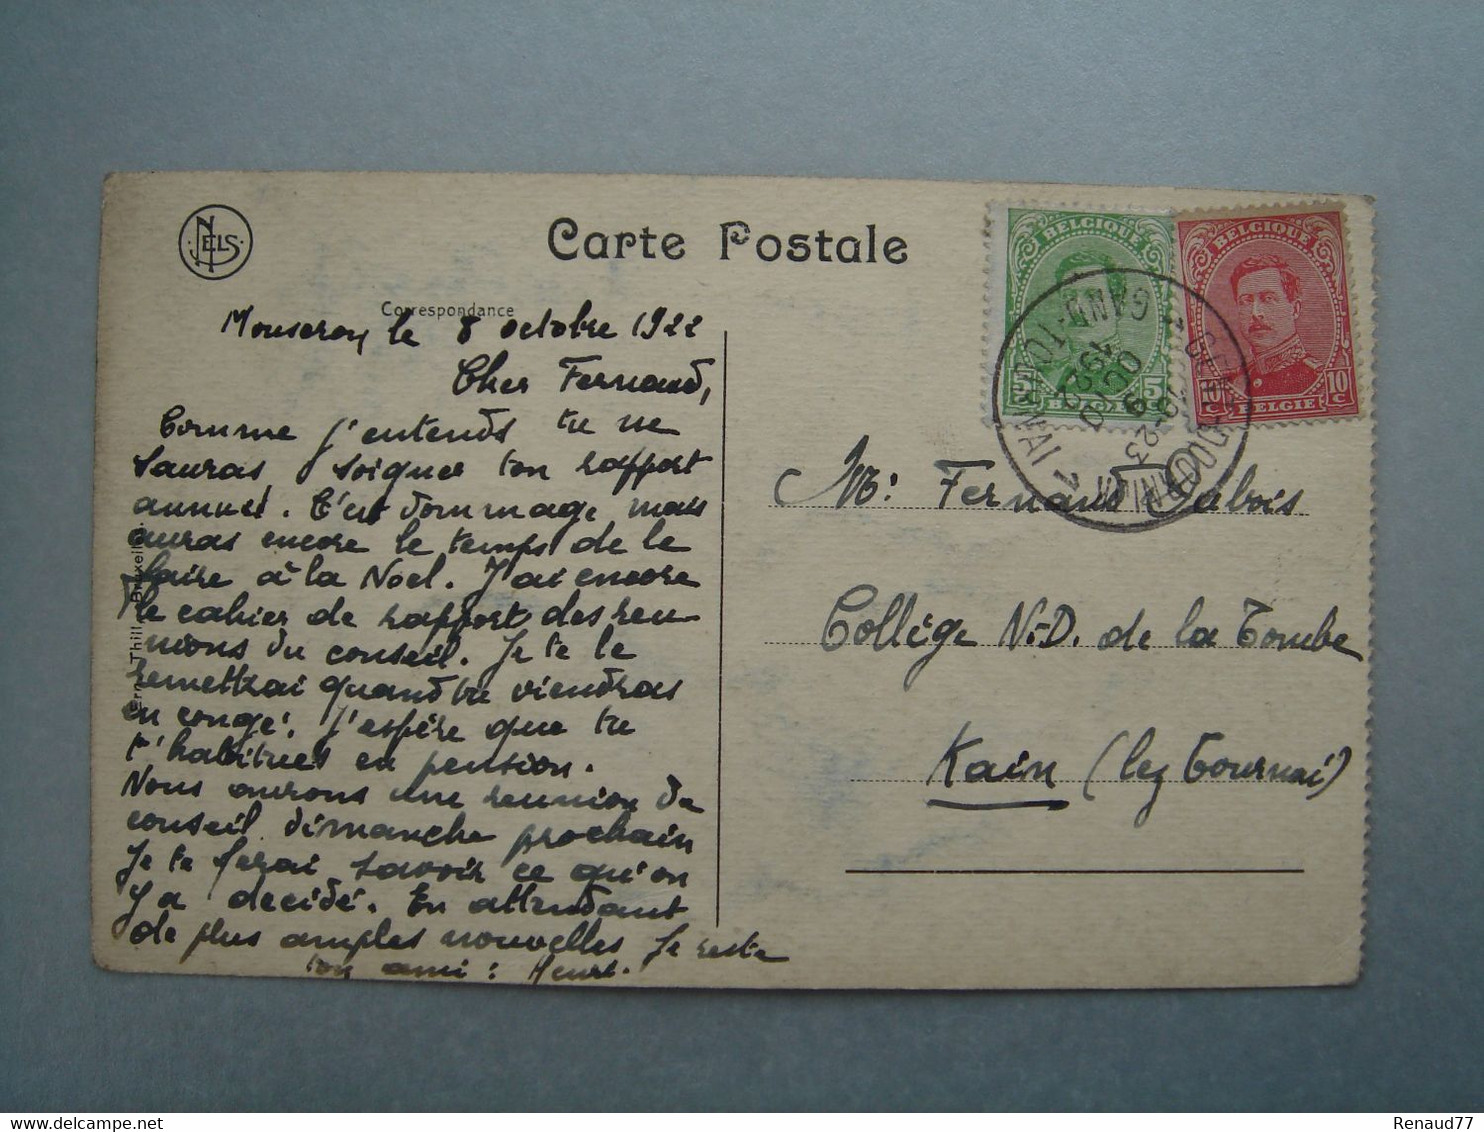 NELS
Carte Postale
Correspondance
Mouscron le 8 octobre 1922
Cher Fernand,
Comme j'entends tu ne
sauras soigner ton rapport
annuel. C'est dommage, mais
auras encore le temps de le
faire à la Noël. J'ai encore
le cahier de rapport des reu-
nions du conseil. Je te le
remettrai quand tu viendras
en congé. J'espère que tu
t'habitues en pension.
Nous aurons une reunion de
conseil dimanche prochain
Je te ferai savoir ce qu'on
y a decidé. En attendant
de plus amples nouvelles Je reste
ton ami :
Ern. Thill, Bruxelles.
BELGIQUE
5 5
BELGIQUE
10 C 10 C
BELGIE
TOURNAI 1
9
OCT
1922
M: Fernand Dubois
Collège N.-D. de la Tombe
Kain (lez Tournai)
Renaud77